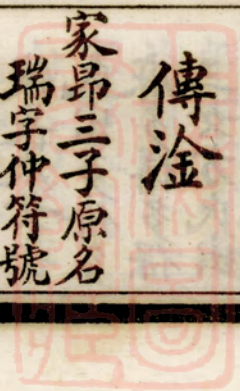 傳淦
家昻三子原名
瑞字仲符號